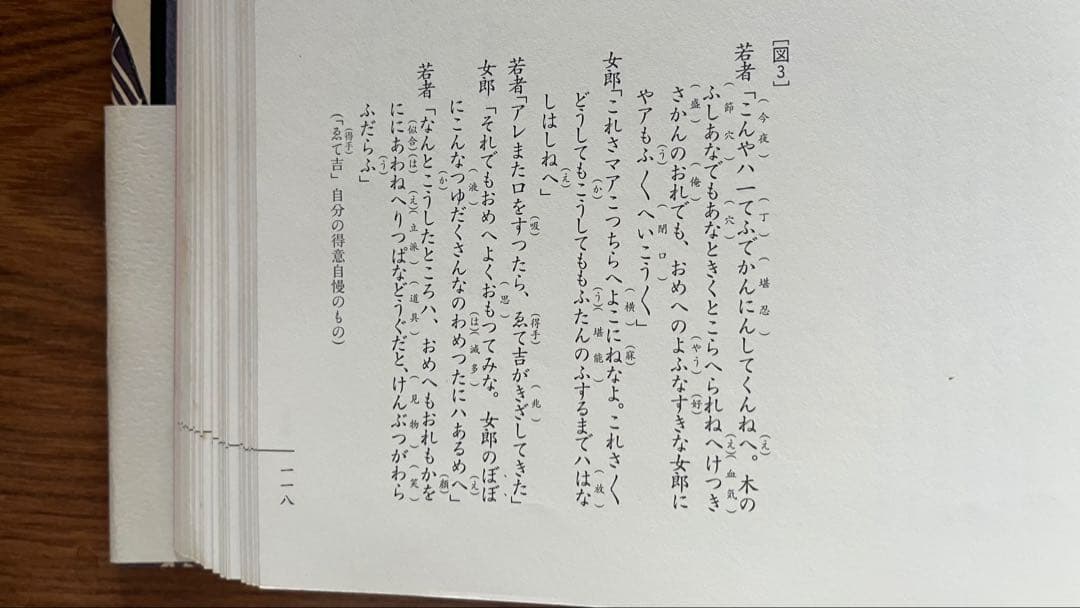 [図3]
(今夜)(丁)(堪忍)(え)
若者「こんやハ一てふでかんにんしてくんねへ。木の
(節穴)(穴)(え)(血気)
ふしあなでもあなときくとこらへられねへけつき
(盛)(俺)(やう)(好)
さかんのおれでも、おめへのよふなすきな女郎に
(う)(閉口)
やアもふ〱へいこう〱」
(横)(寐)
女郎「これさマアこつちらへよこにねなよ。これさ〱
(か)(う)(堪能)(放)
どうしてもこうしてももふたんのふするまでハはな
(え)
しはしねへ」
(吸)(得手)(兆)
若者「アレまた口をすつたら、ゑて吉がきざしてきた」
(思)
女郎「それでもおめへよくおもつてみな。女郎のぼぼ
(液)(は)(滅多)(え)
にこんなつゆだくさんなのわめつたにハあるめへ」
(か)(顔)
若者「なんとこうしたところハ、おめへもおれもかを
(似合)(は)(え)(立派)(道具)(見物)(笑)
ににあわねへりつぱなどうぐだと、けんぶつがわら
(う)
ふだらふ」
(得手)
(「ゑて吉」自分の得意自慢のもの)
一一八